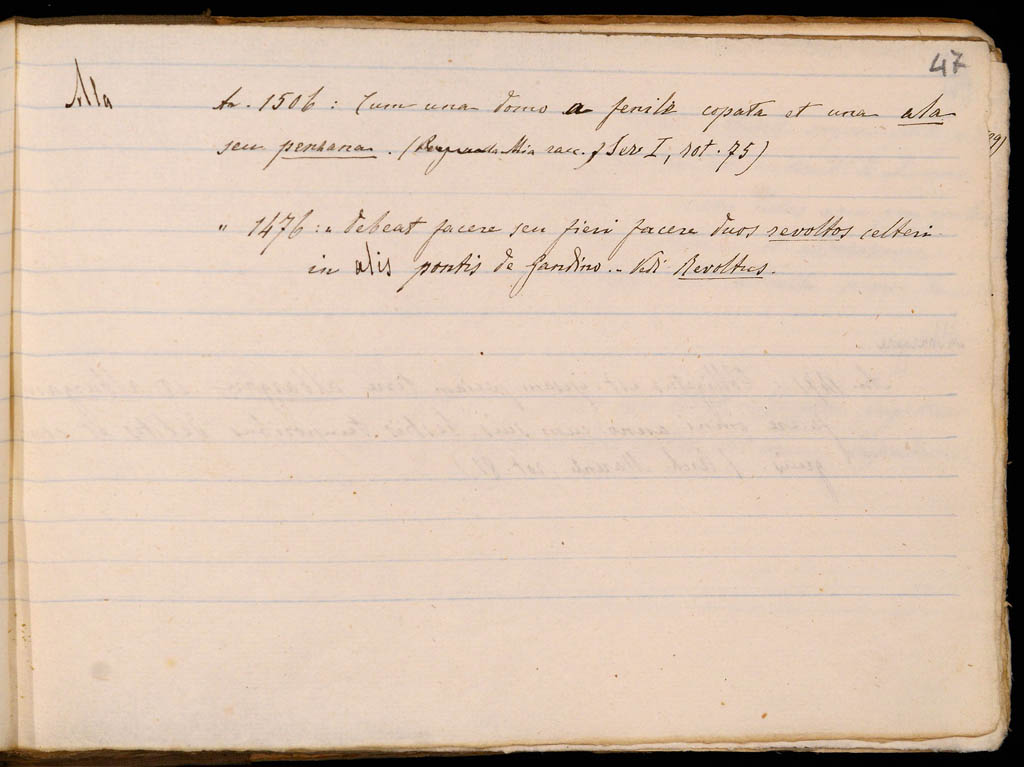 47
Ala
An. 1506: Cum una domo a fenili copata et una ala
seu penzana. (Mia racc. Ser. I, rot. 75)
" 1476: " debeat facere seu fieri facere duos revoltos celteri
in alis pontis de Gandino.. Vedi Revoltus.